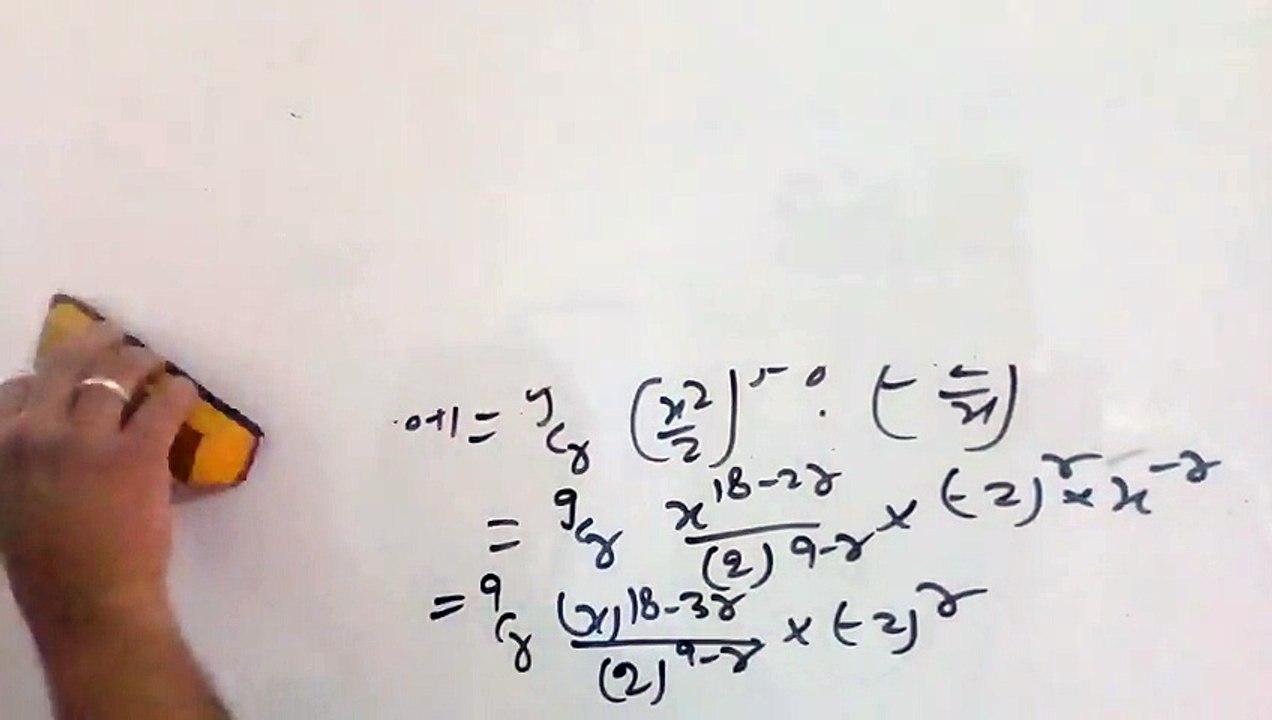 +1 = 9Cr (x²/2) · (- /x)
= 9Cr x^(18-2r)/(2)^(9-r) × (-2)^r × x^(-r)
= 9Cr (x)^(18-3r)/(2)^(9-r) × (-2)^r